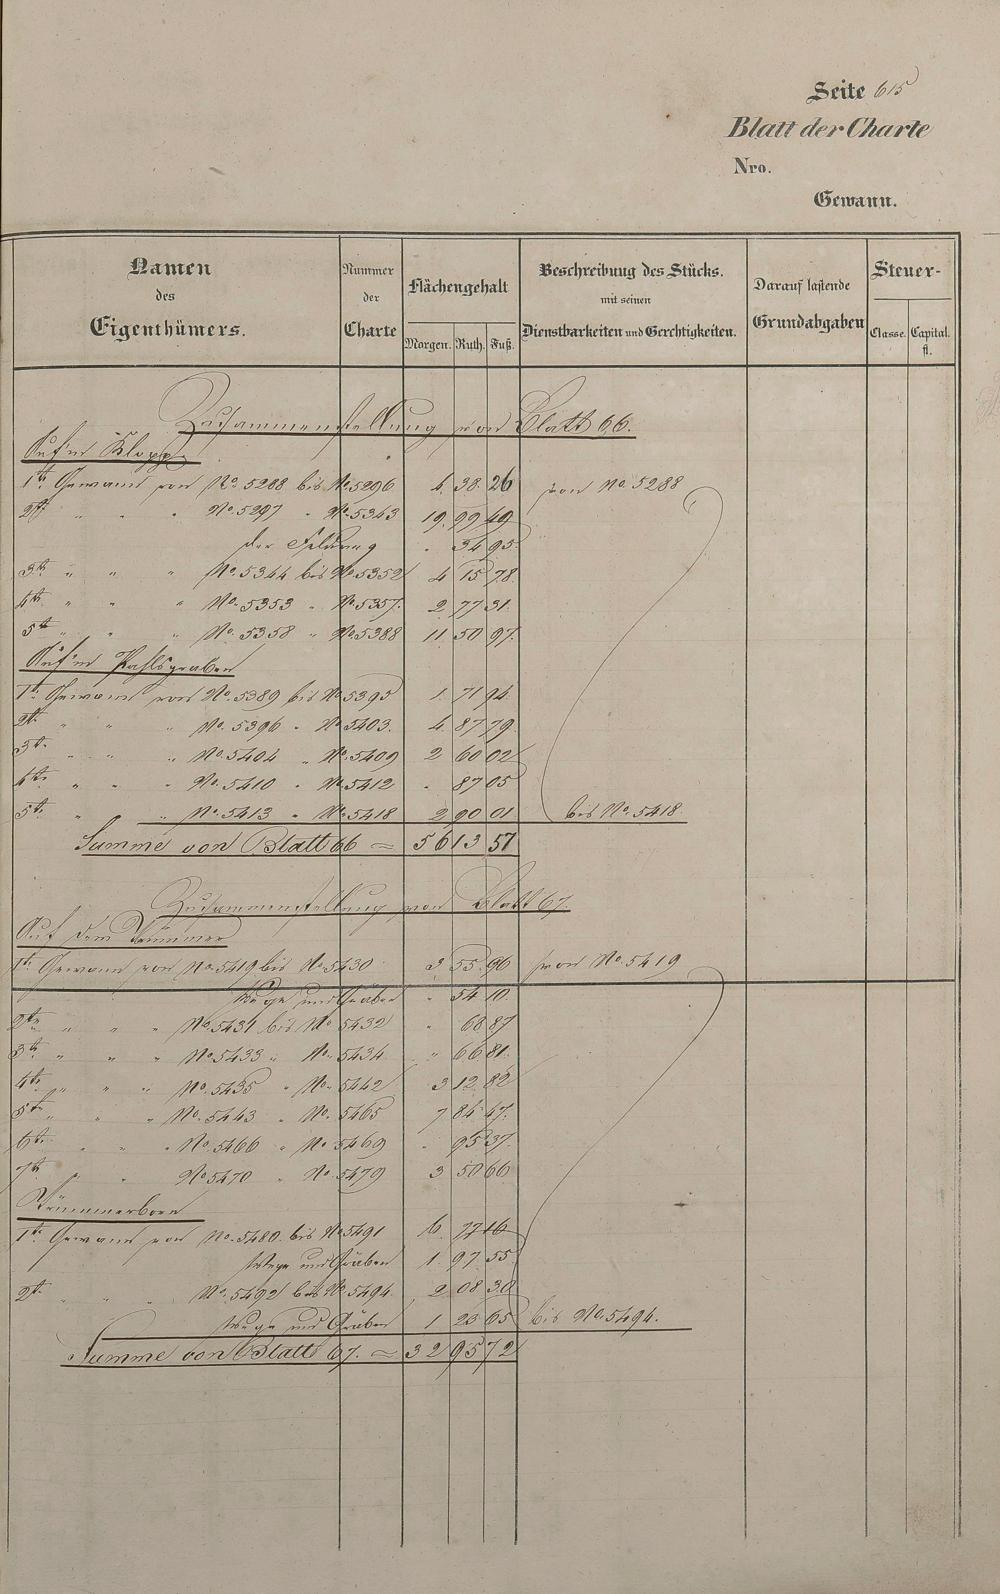 Seite 615
Blatt der Charte
Nro.
Gewann.
Namen des Eigenthümers.
Nummer der Charte
Flächengehalt
Morgen. Ruth. Fuß.
Beschreibung des Stücks. mit seinen Dienstbarkeiten und Gerechtigkeiten.
Darauf lastende Grundabgaben
Steuer-
Classe. Capital. fl.
Zusammenstellung von Blatt 66.
Auf'm Klopp
1te Gewann von No. 5288 bis No. 5296 6. 38. 26 von No. 5288
2te " " " No. 5297 " No. 5343 19. 99 49
der Feldweg " 34 95
3te " " " No. 5344 bis No. 5352 4 15 78.
4te " " " No. 5353 " No. 5357. 2 77 31.
5te " " " No. 5358 " No. 5388 11 50 97.
Auf'm Pfahlsgraben
1te Gewann von No. 5389 bis No. 5395 1. 71 94.
2te " " " No. 5396 " No. 5403. 4. 87 79.
3te " " " No. 5404 " No. 5409 2 60 02
4te " " " No. 5410 " No. 5412 " 87 05
5te " " " No. 5413 " No. 5418 2 90 01 bis No. 5418
Summe von Blatt 66 = 56 13 57
Zusammenstellung von Blatt 67.
Auf dem
1te Gewann von No. 5419 bis No. 5430 3 55 96 von No. 5419
Wege und Gräben " 54 10.
2te " " " No. 5431 bis No. 5432 " 68 87
3te " " " No. 5433 " No. 5434 " 66 81.
4te " " " No. 5435 " No. 5442 3 12 82
5te " " " No. 5443 " No. 5465 7 84 47.
6te " " " No. 5466 " No. 5469 " 95 37.
7te " " No. 5470 " No. 5479 3 50 66
1te Gewann von No. 5480. bis No. 5491 6. 77 16
Wege und Gräben 1. 97 55
2te " " " No. 5492 bis No. 5494. 2 08 30
Wege und Gräben 1 23 65 bis No. 5494.
Summe von Blatt 67. = 32 95 72